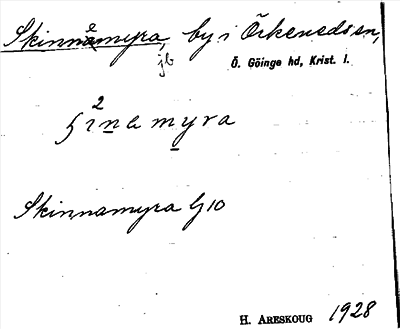 Skinnamyra, by i Örkeneds sn,
jb
Ö. Göinge hd, Krist. l.
Skinnamyra Gj 10
H. ARESKOUG 1928